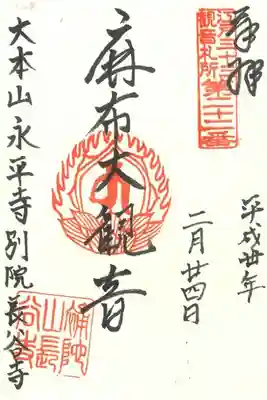 奉拝
江戸三十三
観音札所第二十二番
平成卅年
二月廿四日
麻布大觀音
大本山永平寺別院長谷寺
補陀
山長
谷寺